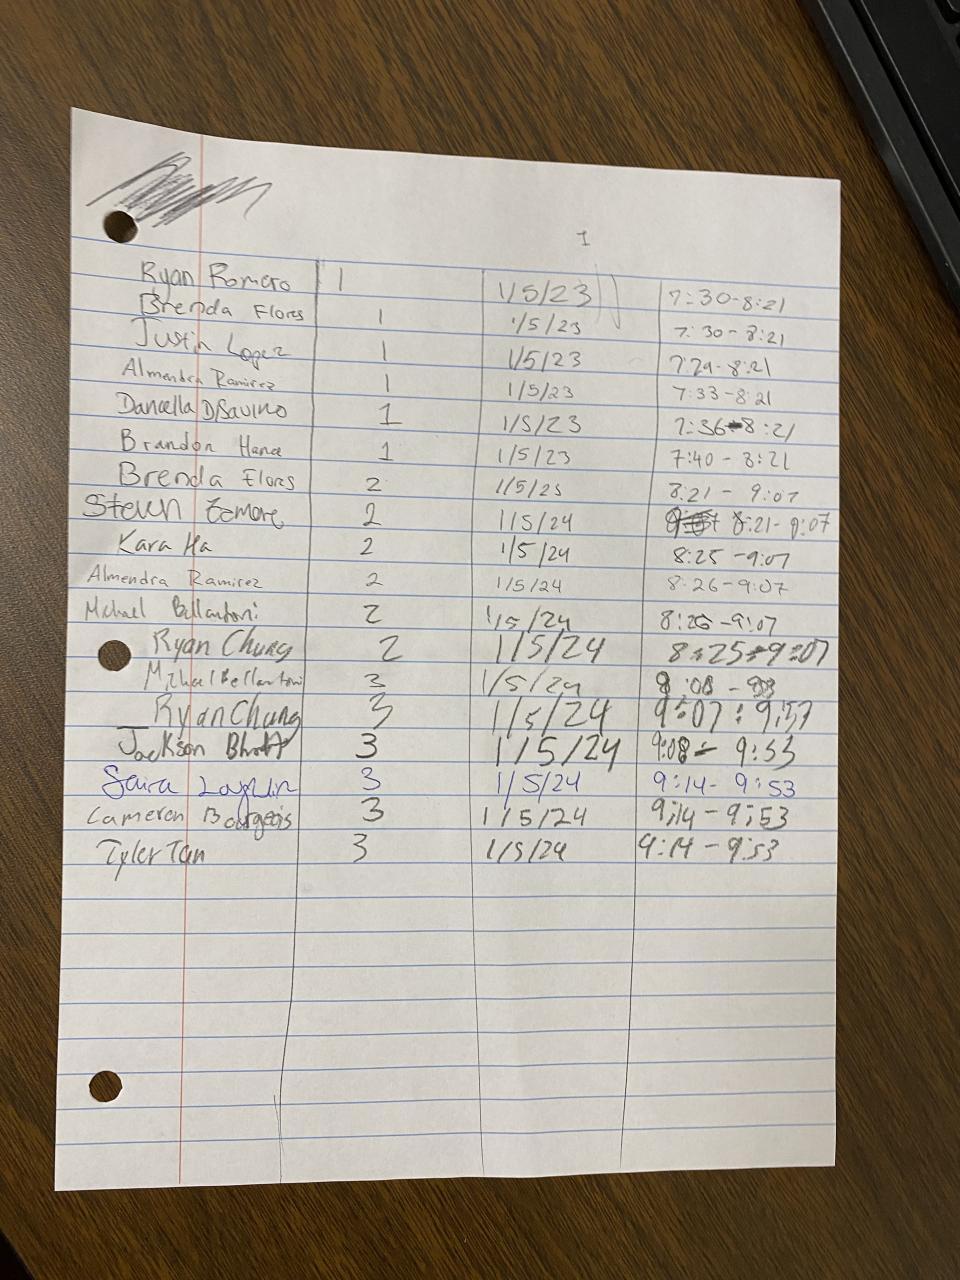 1
Ryan Romero 1 1/5/23 7:30-8:21
Brenda Flores 1 1/5/23 7:30-8:21
Justin Lopez 1 1/5/23 7:29-8:21
Almendra Ramirez 1 1/5/23 7:33-8:21
Daniella DiSavino 1 1/5/23 7:36-8:21
Brandon 1 1/5/23 7:40-8:21
Brenda Flores 2 1/5/23 8:21-9:07
Steven 2 1/5/24 8:21-9:07
Kara Ha 2 1/5/24 8:25-9:07
Almendra Ramirez 2 1/5/24 8:26-9:07
Michael Bellantoni 2 1/5/24 -9:07
Ryan Chung 2 1/5/24 8:25-9:07
Michael Bellantoni 3 1/5/24 :08 -
Ryan Chung 3 1/5/24 9:07:
Jackson Bhatt 3 1/5/24 9:08- 9:53
3 1/5/24 9:14-9:53
Cameron Bourgeois 3 1/5/24 9;14-9;53
Tyler Tan 3 1/5/24 9:14-9:53